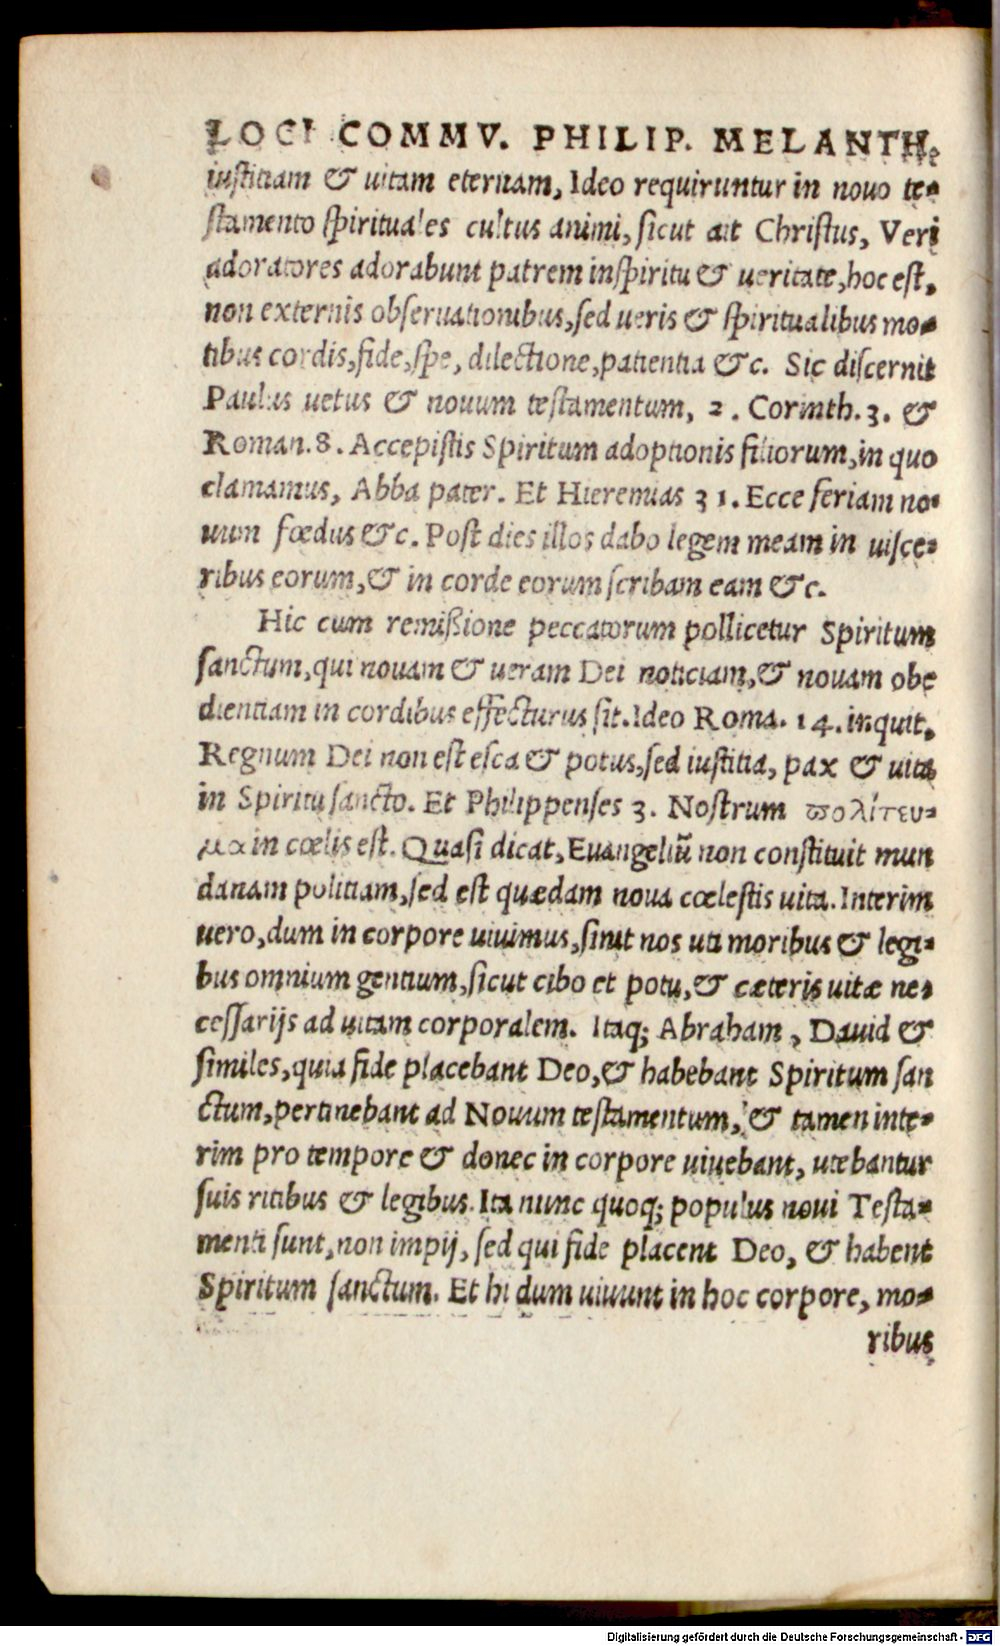 LOCI COMMV. PHILIP. MELANTH.
iustitiam & uitam eternam, Ideo requiruntur in nouo te-
stamento spirituales cultus animi, sicut ait Christus, Veri
adoratores adorabunt patrem in spiritu & ueritate, hoc est,
non externis obseruationibus, sed ueris & spiritualibus mo-
tibus cordis, fide, spe, dilectione, patientia &c. Sic discernit
Paulus uetus & nouum testamentum, 2. Corinth. 3. &
Roman. 8. Accepistis Spiritum adoptionis filiorum, in quo
clamamus, Abba pater. Et Hieremias 31. Ecce feriam no-
uum fœdus &c. Post dies illos dabo legem meam in uisce-
ribus eorum, & in corde eorum scribam eam &c.
Hic cum remißione peccatorum pollicetur Spiritum
sanctum, qui nouam & ueram Dei noticiam, & nouam obe
dientiam in cordibus effecturus sit. Ideo Roma. 14. inquit,
Regnum Dei non est esca & potus, sed iustitia, pax & uita
in Spiritu sancto. Et Philippenses 3. Nostrum πολίτευ-
μα in cœlis est. Quasi dicat, Euangeliũ non constituit mun
danam politiam, sed est quædam noua cœlestis uita. Interim
uero, dum in corpore uiuimus, sinit nos uti moribus & legi-
bus omnium gentium, sicut cibo et potu, & cæteris uitæ ne-
cessarijs ad uitam corporalem. Itaq; Abraham, Dauid &
similes, quia fide placebant Deo, & habebant Spiritum san
ctum, pertinebant ad Nouum testamentum, & tamen inte-
rim pro tempore & donec in corpore uiuebant, utebantur
suis ritibus & legibus. Ita nunc quoq; populus noui Testa-
menti sunt, non impij, sed qui fide placent Deo, & habent
Spiritum sanctum. Et hi dum uiuunt in hoc corpore, mo-
ribus
Digitalisierung gefördert durch die Deutsche Forschungsgemeinschaft - DFG